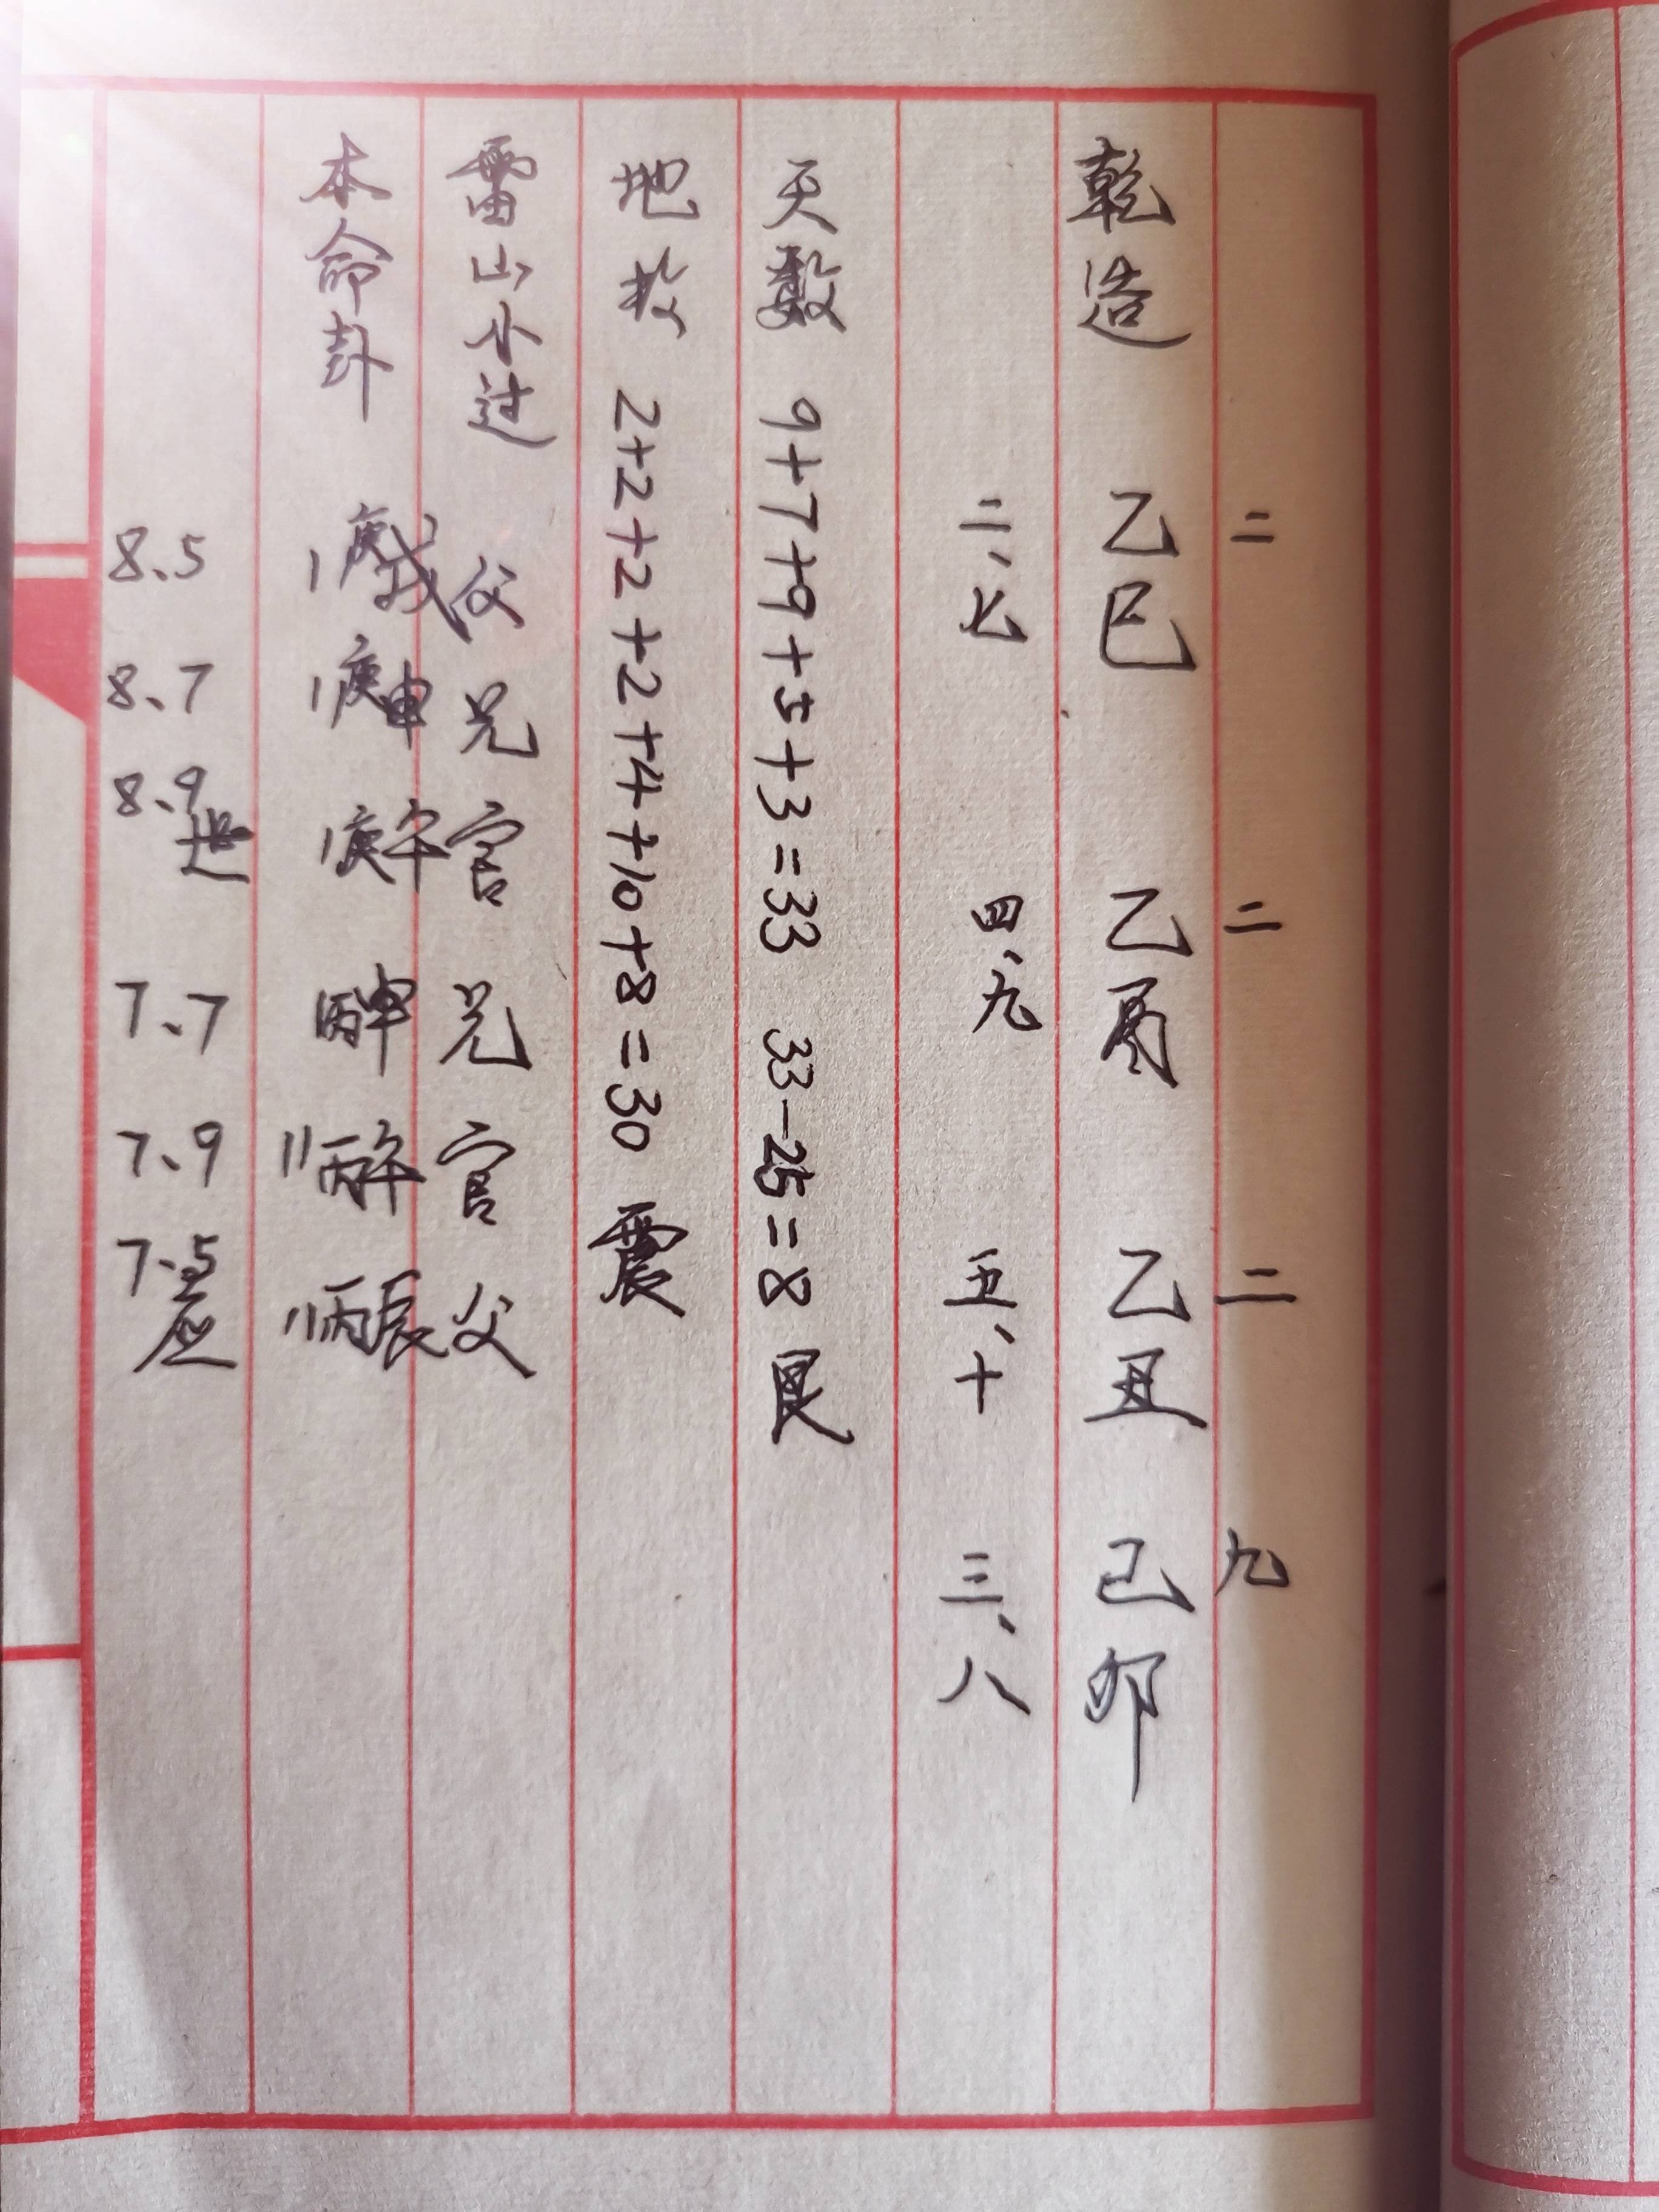 二 二 二 九
乾造 乙巳 乙酉 乙丑 己卯
二、七 四、九 五、十 三、八
天数 9+7+9+5+3=33 33-25=8 艮
地数 2+2+2+2+4+10+8=30 震
雷山小过 父 兄 官 兄 官 父
本命卦 庚戌 庚申 庚午 丙申 丙午 丙辰
8、5 8、7 8、9世 7、7 7、9 7、5应